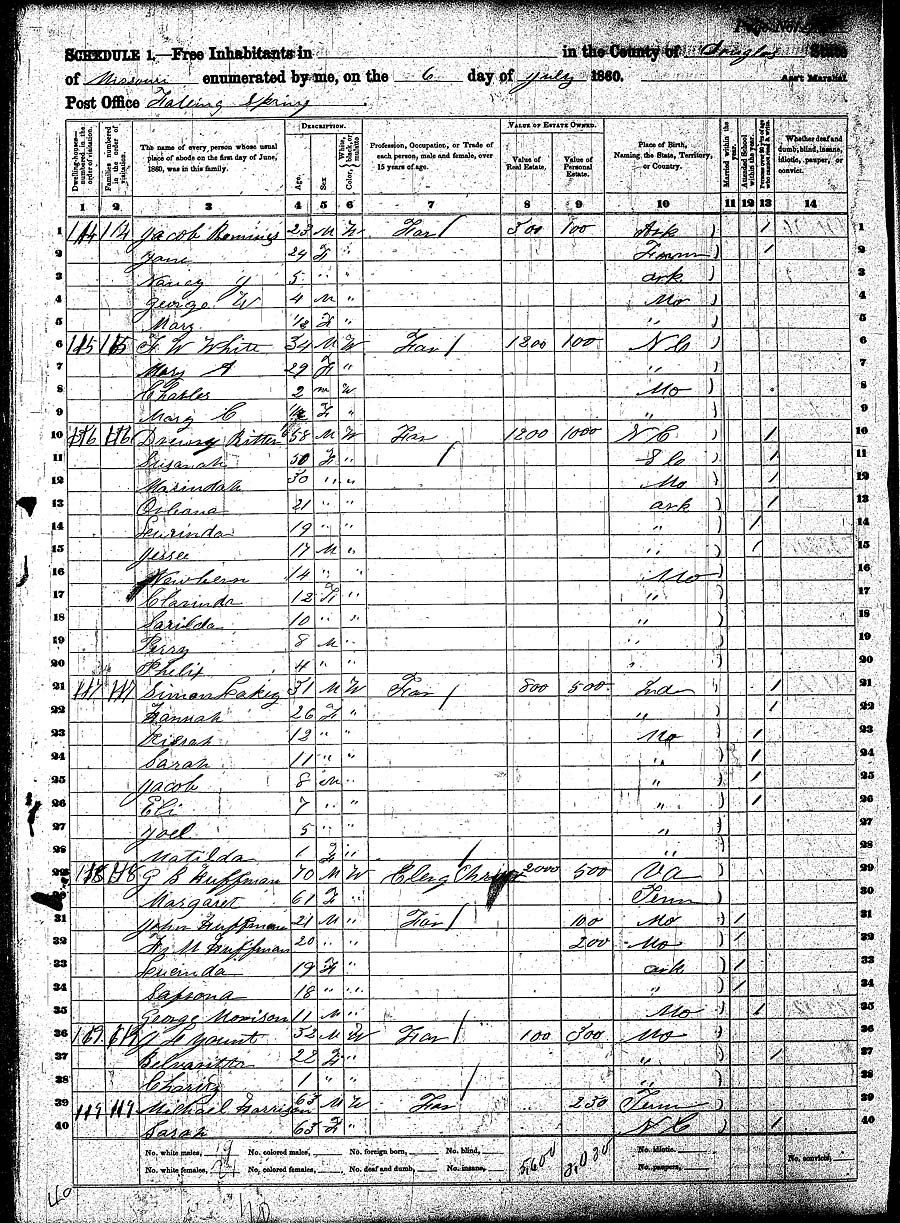 SCHEDULE 1.—Free Inhabitants in in the County of Douglas State
of Missouri enumerated by me, on the 6 day of July 1860. Ass't Marshal
Post Office Falling Spring
Dwelling-houses—numbered in the order of visitation. Families numbered in the order of visitation. The name of every person whose usual place of abode on the first day of June, 1860, was in this family. DESCRIPTION. Age. Sex White, black, or mulatto Color, Profession, Occupation, or Trade of each person, male and female, over 15 years of age. VALUE OF ESTATE OWNED. Value of Real Estate. Value of Personal Estate. Place of Birth, Naming the State, Territory, or Country. Married within the year. Attended School within the year. Persons over 20 y'rs of age who cannot read & write. Whether deaf and dumb, blind, insane, idiotic, pauper, or convict.
1 2 3 4 5 6 7 8 9 10 11 12 13 14
1 114 114 Jacob 23 M W Far 100 Ark 1 1
2 Jane 24 F " 1 2
3 Nancy 5 " " Ark 3
4 George W 4 M " Mo 4
5 Mary F " " 5
6 115 115 F W White 34 M W Far 1200 100 N C 6
7 Mary A 29 F " " 7
8 Charles 2 m W Mo 8
9 Mary C F " " 9
10 116 116 Drewry Ritter 58 M W Far 1200 1000 N C 1 10
11 Susanah 50 F " 1 11
12 Marindah 30 " " Mo 1 12
13 Orleana 21 " " ark 1 13
14 Lurinda 19 " " " 1 14
15 Jessee 17 M " " 1 15
16 Newbern 14 " " Mo 16
17 Clarinda 12 F " " 17
18 Sarilda 10 " " " 18
19 Perry 8 M " " 19
20 Philip 4 " " " 20
21 117 117 Simon Lakey 31 M W Far 800 500 Ind 1 21
22 Hannah 26 F " " 1 22
23 Kisrah 12 " " Mo 1 23
24 Sarah 11 " " " 1 24
25 Jacob 8 M " " 1 25
26 Eli 7 " " " 1 26
27 Joel 5 " " " 27
28 Matilda 1 F " " 28
29 118 118 G B Huffman 70 M W Clerg 2000 500 Va 29
30 Margaret 61 F " Tenn 30
31 John Huffman 21 M " Far 100 Mo 1 31
32 Huffman 20 " " 200 Mo 1 32
33 Lucinda 19 F " ark 1 33
34 Saprona 18 " " " 1 34
35 George Morrison 11 M " Mo 1 35
36 Yount 32 M W Far 100 300 Mo 36
37 22 F " " 1 37
38 Charity 1 " " " 38
39 119 119 Michael Garrison 63 M W Far 230 Tenn 39
40 Sarah 63 F " N C 1 40
No. white males, 19 No. colored males, No. foreign born, No. blind, No. idiotic. No. convicts,
No. white females, 21 No. colored females, No. deaf and dumb, No. insane, 5,600 No. paupers,
40
40